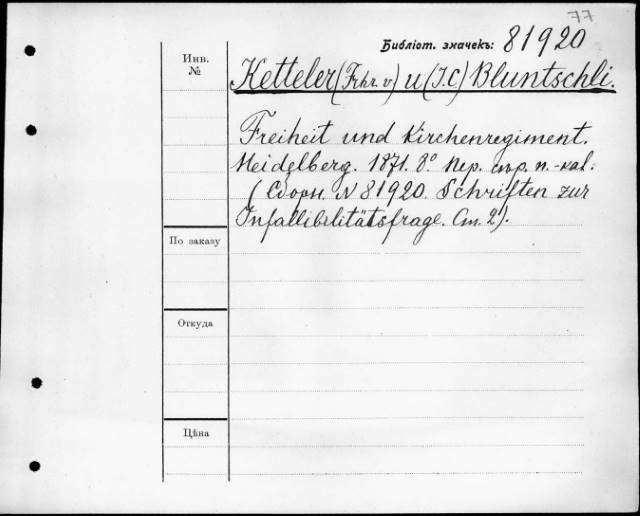 77
Библіот. значекъ: 81920
Инв.
№
Ketteler (Frhr. v.) u (J.C.) Bluntschli.
Freiheit und Kirchenregiment.
Heidelberg. 1871. 8° Пер. сър. п.-кал.
(Сборн. N 81920. Schriften zur
Infallibilitätsfrage. Ст. 2).
По заказу
Откуда
Цѣна